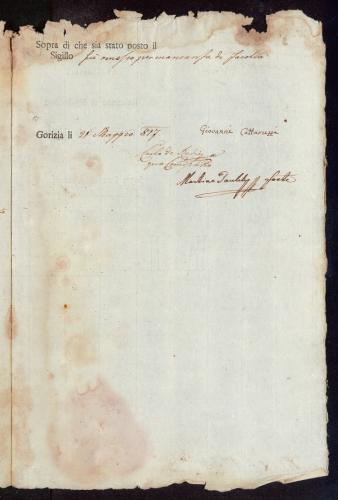 Sopra di che sia stato posto il
Sigillo fu omesso per mancanza di facoltà
Gorizia li 21 Maggio 1817
Giovanni Cattaruzza
Carlo de